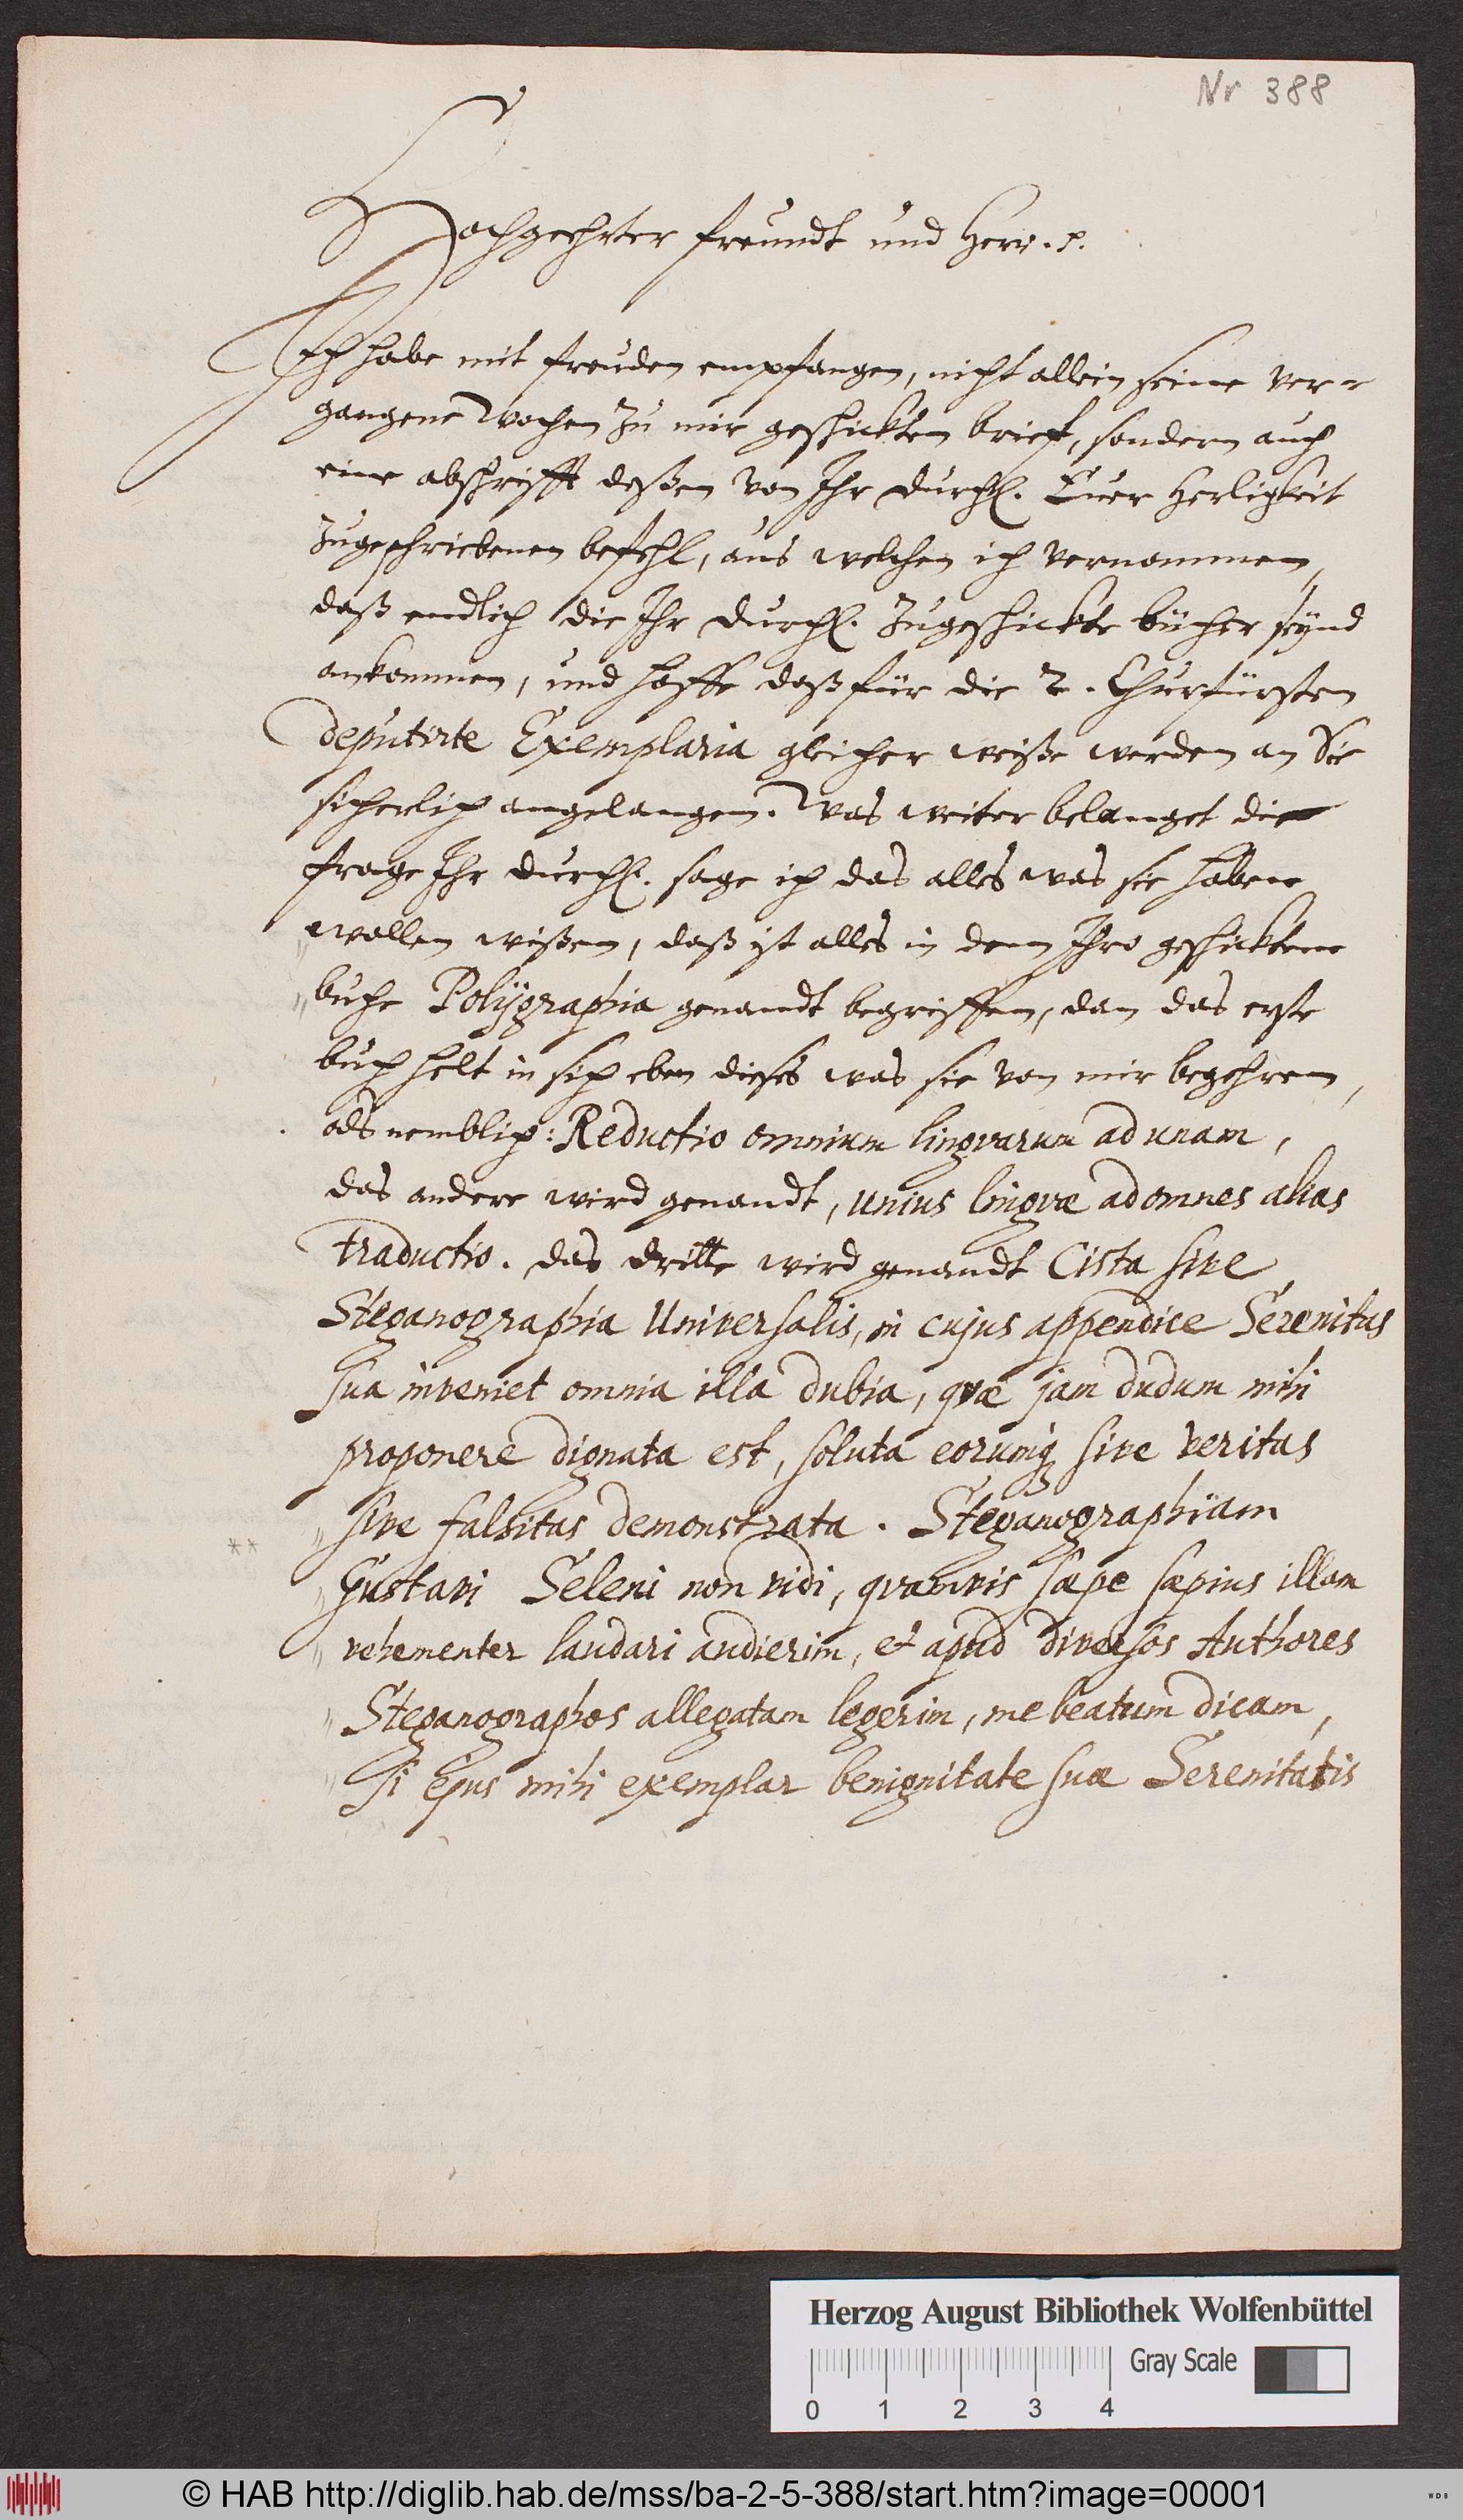 Nr 388
Hochgeehrter freundt und Herr. p.
Ich habe mit freuden empfangen, nicht allein seine ver-
gangene Wochen zu mir geschickten brief, sondern auch
eine abschrifft deßen von Ihr Durchl. Euer Herligkeit
zugeschriebenen befehl, aus welchen ich vernommen,
daß endlich die Ihr Durchl. zugeschickte bücher seÿnd
ankommen, und hoffe daß für die 2. Churfürsten
deputirte Exemplaria gleicher weiße werden an Sie
sicherlich angelangen. Was weiter belanget die
frage Ihr Durchl. sage ich das alles was sie haben
wollen wißen, daß ist alles in dem Ihro geschickten
buche Polÿgraphia genandt begriffen, dan das erste
buch helt in sich eben dieses was sie von mir begehren,
als nemblich: Reductio omnium lingvarum ad unam,
das andere wird genandt, unius lingvæ ad omnes alias
traductio. das dritte wird genandt Cista sive
Steganographia Universalis, in cujus appendice Serenitas
sua inveniet omnia illa dubia, qvæ jam dudum mihi
proponere dignata est, soluta eorumq sive veritas
sive falsitas demonstrata. Steganographiam
** Gustavi Seleni non vidi, qvamvis sæpe sæpius illam
vehementer laudari audierim, et apud diversos Authores
Steganographos allegatam legerim, me beatum dicam,
si ejus mihi exemplar benignitate suæ Serenitatis
Herzog August Bibliothek Wolfenbüttel
Gray Scale
0 1 2 3 4
© HAB http://diglib.hab.de/mss/ba-2-5-388/start.htm?image=00001
WDB